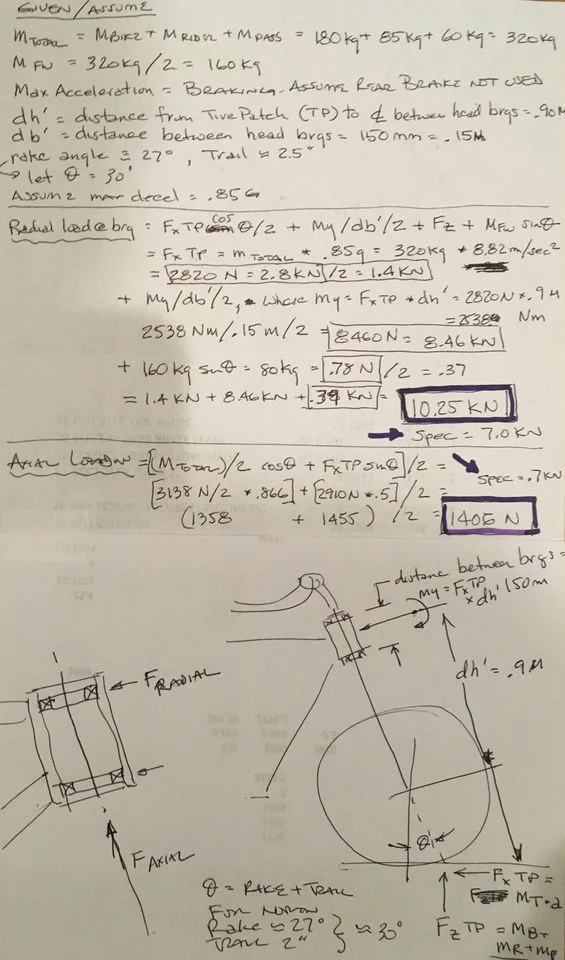 GIVEN/ASSUME
MTOTAL = MBIKE + MRIDER + MPASS = 180kg + 85kg + 60kg = 320kg
MFW = 320kg/2 = 160kg
Max Acceleration = BRAKING - ASSUME REAR BRAKE NOT USED
dh' = distance from Tire Patch (TP) to ℄ between head brgs = .90M
db' = distance between head brgs = 150mm = .15M
rake angle ≅ 27°, Trail ≈ 2.5"
→ let θ = 30°
ASSUME max decel = .85G
Radial load @ brg = FxTP cos θ/2 + My/db'/2 + Fz + MFW sinθ
= FxTP = mTOTAL * .85g = 320kg * 8.82m/sec²
= 2820N = 2.8KN /2 = 1.4KN
+ My/db'/2, where My = FxTP * dh' = 2820N * .9M
= 2538 Nm
2538Nm/.15m/2 = 8460N = 8.46KN
+ 160kg sinθ = 80kg = .78N /2 = .37
= 1.4KN + 8.46KN + .39KN = 10.25KN
→ Spec = 7.0KN
AXIAL LOAD = [MTOTAL)/2 cosθ + FxTP sinθ]/2 =
Spec = .7KN
[3138N/2 * .866] + [2910N * .5]/2 =
(1358 + 1455) /2 = 1406N
distance between brgs =
150m
my = FxTP
* dh'
dh' = .9M
FRADIAL
FAXIAL
θ'
FxTP =
MT·a
θ = RAKE + TRAIL
FOR NORTON
Rake ≈ 27°
TRAIL 2"
} ≈ 30°
FzTP = MB+
MR + MP